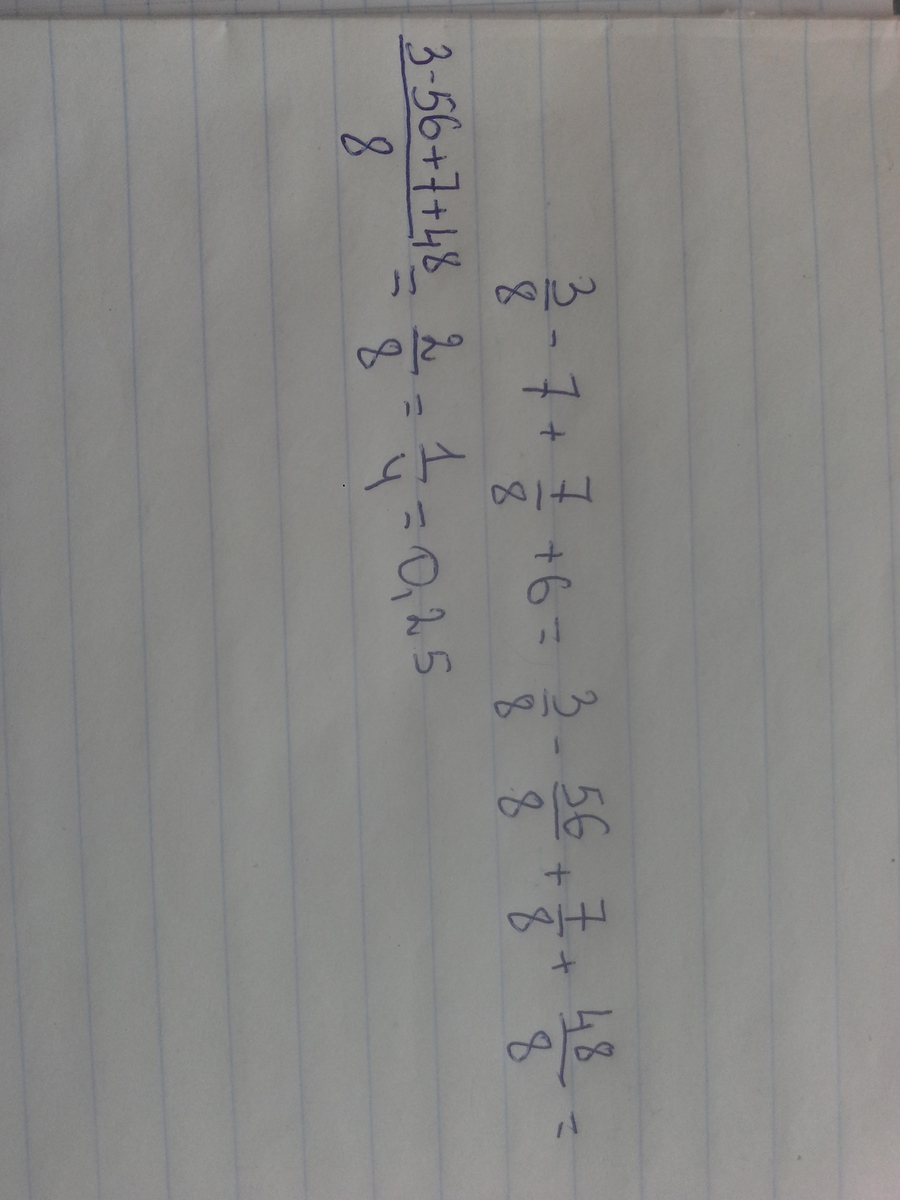 3/8 - 7 + 7/8 + 6 = 3/8 - 56/8 + 7/8 + 48/8 =
3-56+7+48/8 = 2/8 = 1/4 = 0,25